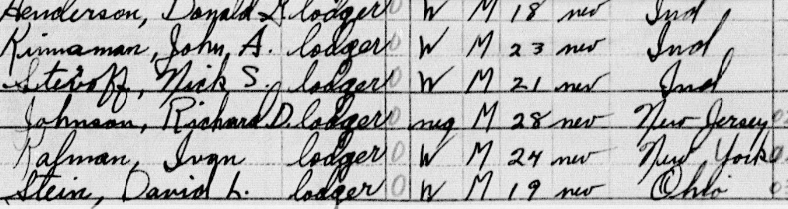 Henderson, Donald L. lodger 0 W M 18 nev Ind
Kinnaman, John, A. lodger 0 W M 23 nev Ind
Stevoff, Nick S. lodger 0 W M 21 nev Ind
Johnson, Richard D. lodger 0 neg M 28 nev New Jersey
Kalman, Ivan lodger 0 W M 24 nev New York
Stein, David L. lodger 0 W M 19 nev Ohio